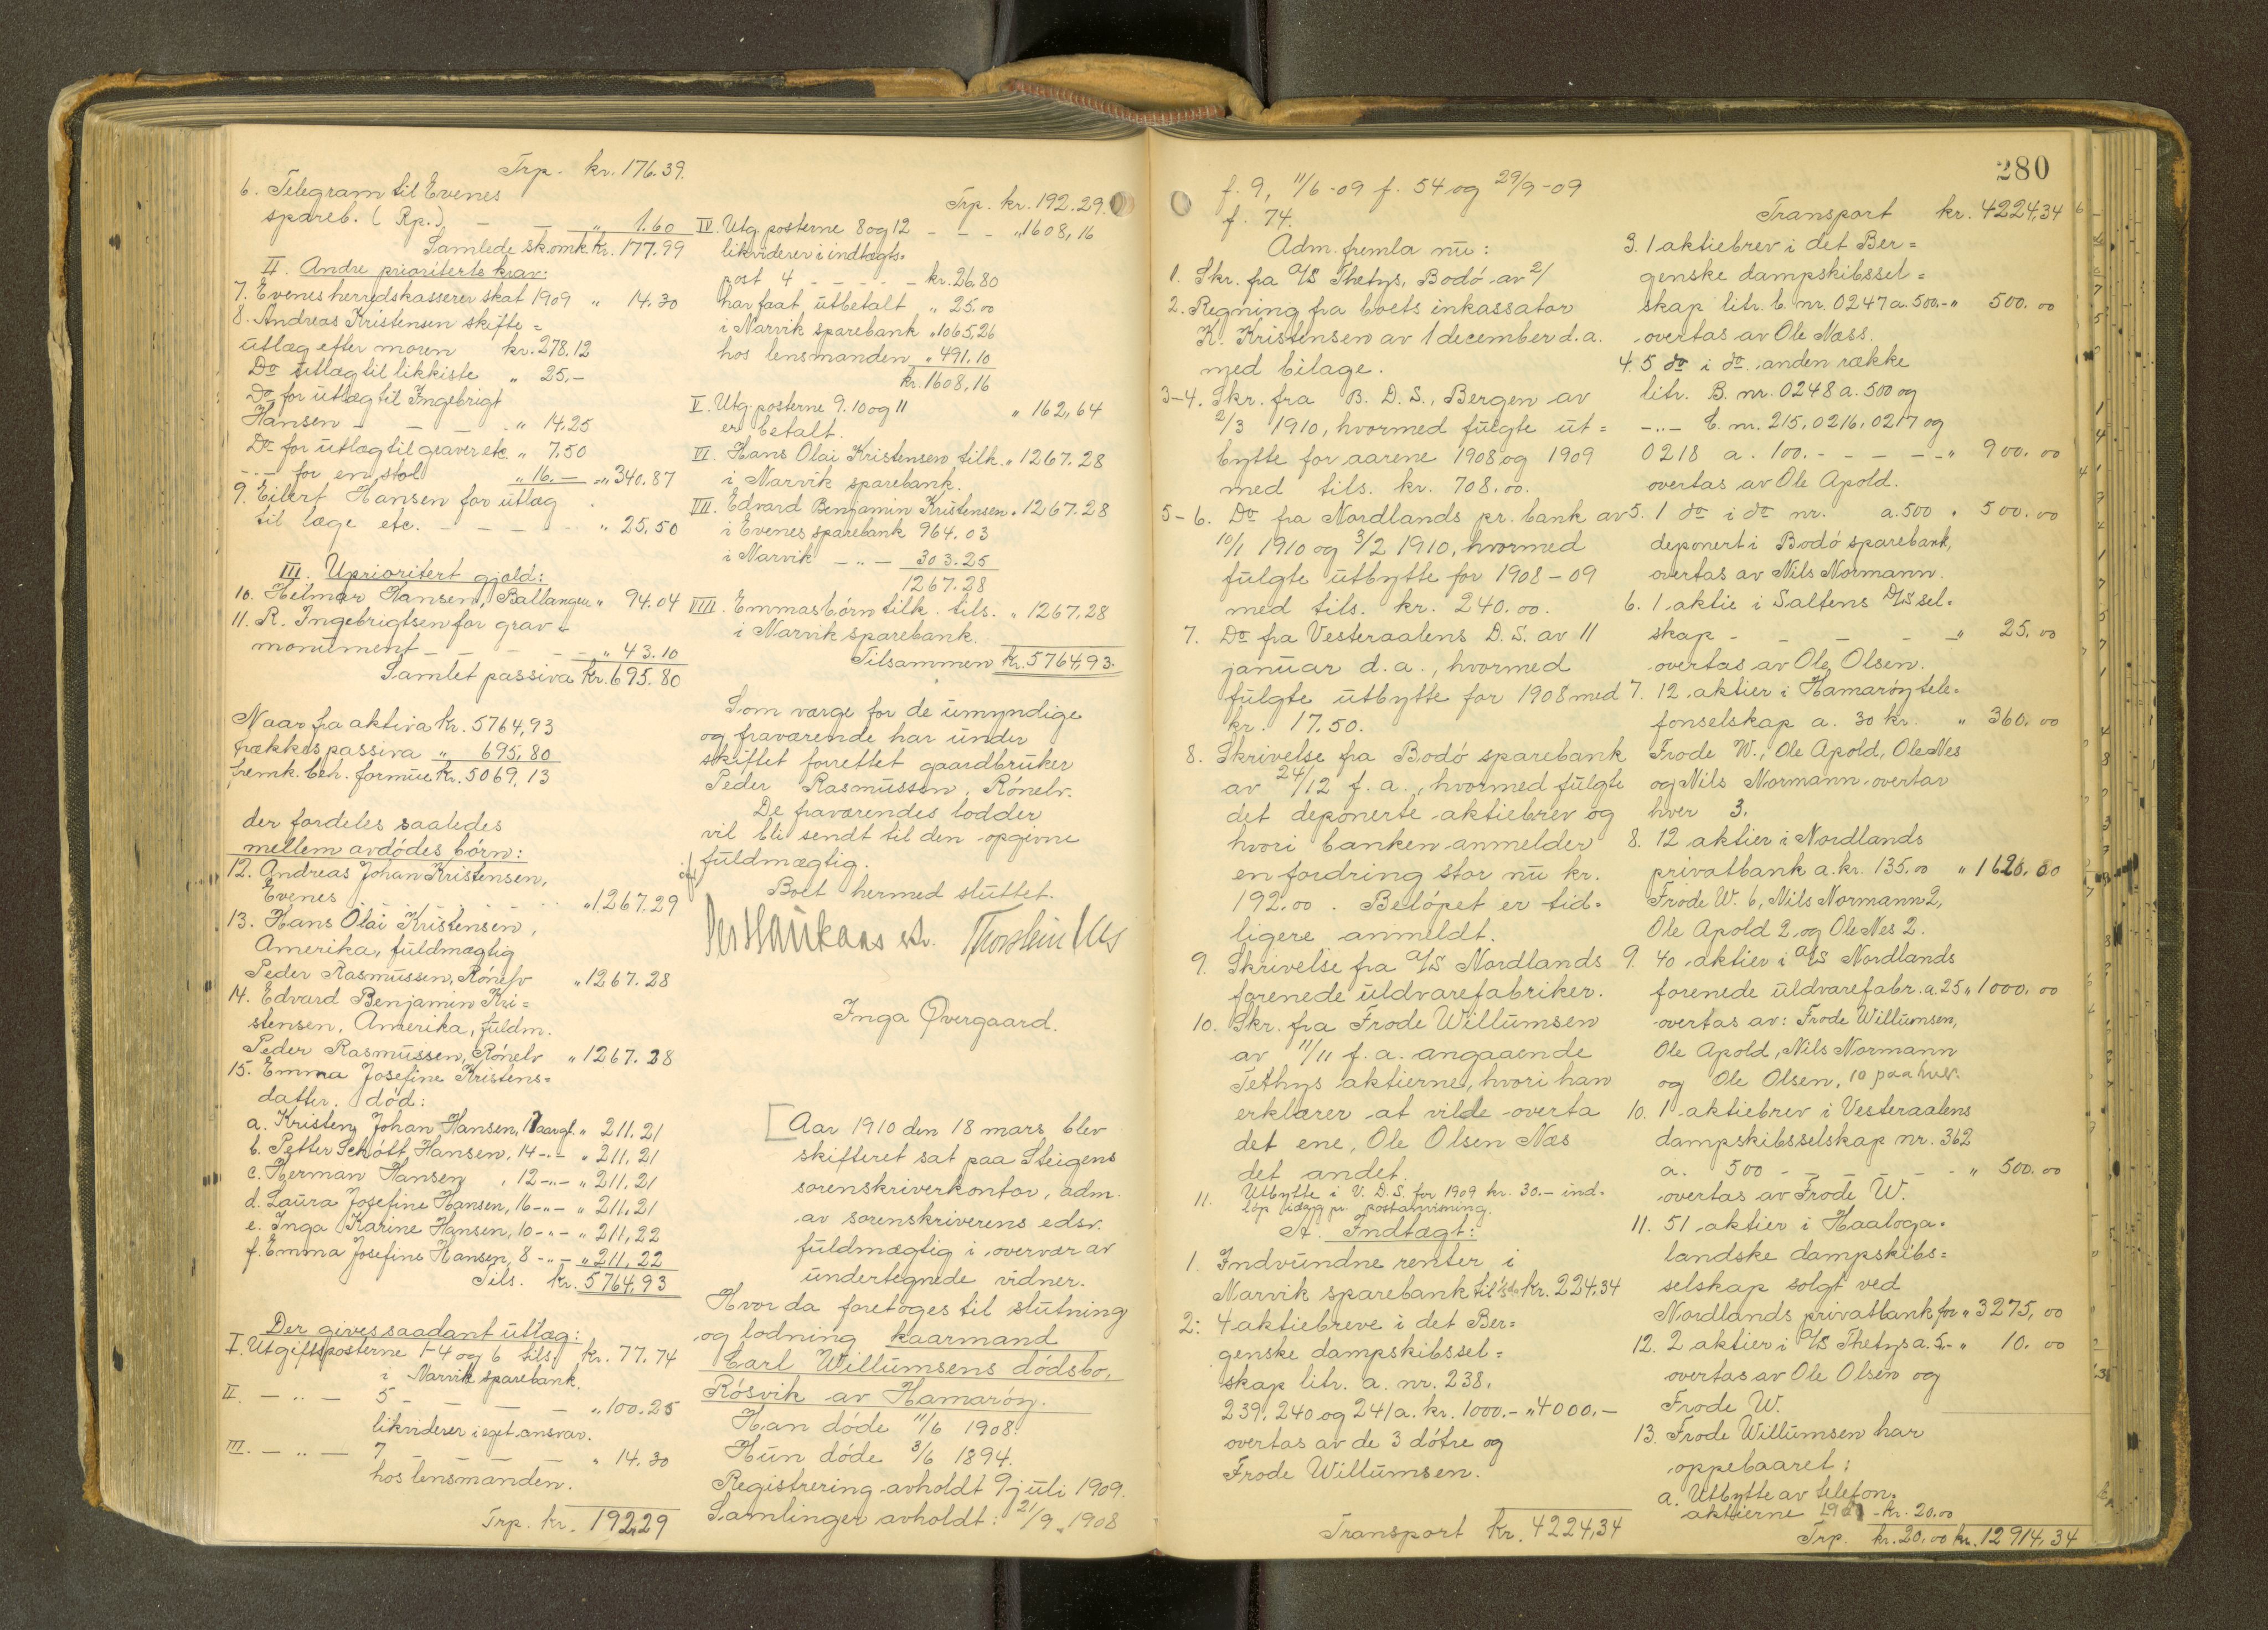 Trp. kr. 176.39.
6. Telegram til Evenes
spareb. (Rp.) - - " 1.60
Samlede sk.omk. kr. 177.99
II. Andre prioriterte krav:
7. Evenes herredskasserer skat 1909 " 14.30
8. Andreas Kristensen skifte =
utlæg efter moren kr. 278.12
Do utlæg til likkiste " 25.-
Do for utlæg til Ingebrigt
Hansen - - - - " 14.25
Do for utlæg til graver etc. " 7.50
-"- for en stol " 16.- " 340.87
9. Eilert Hansen for utlæg
til læge etc. - - - - " 25.50
III. Uprioritert gjæld:
10. Hilmar Hansen, Ballangen " 94.04
11. R. Ingebrigtsen for grav =
monument - - - - " 43.10
Samlet passiva kr. 695.80
Naar fra aktiva kr. 5764,93
trækkes passiva " 695,80
fremk. beh. formue kr. 5069,13
der fordeles saaledes
mellem avdödes börn:
12. Andreas Johan Kristensen,
Evenes . . . . . . . "1267.29
13. Hans Olai Kristensen,
Amerika, fuldmægtig
Peder Rasmussen, Rönelv "1267.28
14. Edvard Benjamin Kri =
stensen, Amerika, fuldm.
Peder Rasmussen, Rönelv "1267.28
15. Emma Josefine Kristens =
datter, död:
a. Kristen Johan Hansen, aargl. " 211.21
b. Petter Schött Hansen, 14 -"- " 211.21
c. Herman Hansen, 12 -"- " 211.21
d. Laura Josefine Hansen, 16 -"- " 211.21
e. Inga Karine Hansen, 10 -"- " 211,22
f. Emma Josefine Hansen, 8 -"- " 211,22
Tils. kr. 5764,93
Der gives saadant utlæg:
I. Utgiftsposterne 1-4 og 6 tils. kr. 77.74
i Narvik sparebank.
II. - " - 5 - - - - " 100.25
likviderer i eget ansvar.
III. - " - 7 - - - - " 14.30
hos lensmanden.
Trp. kr. 192.29
Trp. kr. 192.29.
IV. Utg. posterne 8 og 12 - - - "1608,16
likviderer i indtægts=
post 4 - - - - - kr. 26.80
har faat utbetalt " 25.00
i Narvik sparebank "1065,26
hos lensmanden " 491.10
kr. 1608,16
V. Utg. posterne 9. 10 og 11 " 162,64
er betalt.
VI. Hans Olai Kristensen tilk. " 1267.28
i Narvik sparebank.
VII. Edvard Benjamin Kristensen " 1267.28
i Evenes sparebank 964.03
i Narvik - " - 303.25
1267.28
VIII. Emmas börn tilk. tils. " 1267,28
i Narvik sparebank.
Tilsammen kr. 5764.93.
Som værge for de umyndige
og fraværende har under
skiftet forrettet gaardbruker
Peder Rasmussen, Rönelv.
De fraværendes lodder
vil bli sendt til den opgivne
fuldmægtig.
Boet hermed sluttet.
Per Haukaas Thorstein
Inga Övergaard.
[Aar 1910 den 18 mars blev
skifteret sat paa Steigens
sorenskriverkontor, adm.
av sorenskriverens edsv.
fuldmægtig i overvær av
undertegnede vidner.
Hvor da foretoges til slutning
og lodning kaarmand
Carl Willumsens dödsbo,
Rösvik av Hamaröy.
Han döde 11/6 1908.
Hun döde 3/6 1894.
Registrering avholdt 9 juli 1909.
Samlinger avholdt: 21/9 1908
280
f. 9, 11/6-09 f. 54 og 29/9-09
f. 74.
Adm. fremla nu:
1. Skr. fra A/S Thetys, Bodö av 2/
2. Regning fra boets inkassator
K. Kristensen av 1 december d.a.
med bilage.
3-4. Skr. fra B. D. S., Bergen av
2/3 1910, hvormed fulgte ut =
bytte for aarene 1908 og 1909
med tils. kr. 708.00.
5-6. Do fra Nordlands pr. bank av
10/1 1910 og 3/2 1910, hvormed
fulgte utbytte for 1908-09
med tils. kr. 240.00.
7. Do fra Vesteraalens D. S. av 11
januar d.a., hvormed
fulgte utbytte for 1908 med
kr. 17.50.
8. Skrivelse fra Bodö sparebank
av 24/12 f. a., hvormed fulgte
det deponerte aktiebrev og
hvori banken anmelder
en fordring stor nu kr.
192.00. Belöpet er tid=
ligere anmeldt.
9. Skrivelse fra A/S Nordlands
forenede uldvarefabriker.
10. Skr. fra Frode Willumsen
av 11/11 f. a. angaaende
Tethys aktierne, hvori han
erklærer at vilde overta
det ene, Ole Olsen Næs
det andet.
11. Utbytte i V. D. S. for 1909 kr. 30.- ind=
löp idag pr. postanvisning.
A. Indtægt:
1. Indvundne renter i
Narvik sparebank tils. kr. 224.34
2: 4 aktiebreve i det Ber=
genske dampskibssel =
skap litr. a. nr. 238,
239, 240 og 241 a. kr. 1000.- "4000.-
overtas av de 3 dötre og
Frode Willumsen.
Transport kr. 4224,34
Transport kr. 4224,34
3. 1 aktiebrev i det Ber=
genske dampskibssel =
skap litr. b. nr. 0247 a. 500.- " 500.00
overtas av Ole Næss.
4. 5 do i do anden række
litr. B. nr. 0248 a. 500 og
-"- C. nr. 215, 0216, 0217 og
0218 a. 100. - - - - " 900.00
overtas av Ole Apold.
5. 1 do i do nr. a. 500 " 500.00
deponert i Bodö sparebank,
overtas av Nils Normann.
6. 1 aktie i Saltens D/S sel=
skap - - - - - " 25.00
overtas av Ole Olsen.
7. 12 aktier i Hamaröy tele=
fonselskap a. 30 kr. " 360.00
Frode W., Ole Apold, Ole Nes
og Nils Normann overtar
hver 3.
8. 12 aktier i Nordlands
privatbank a. kr. 135.00 " 1620.00
Frode W. 6, Nils Normann 2,
Ole Apold 2 og Ole Nes 2.
9. 40 aktier i A/S Nordlands
forenede uldvarefabr. a. 25 " 1000.00
overtas av: Frode Willumsen,
Ole Apold, Nils Normann
og Ole Olsen, 10 paa hver.
10. 1 aktiebrev i Vesteraalens
dampskibsselskap nr. 362
a. 500 - - - - - - " 500.00
overtas av Frode W.
11. 51 aktier i Haaloga=
landske dampskibs=
selskap solgt ved
Nordlands privatbank for " 3275,00
12. 2 aktier i A/S Thetys a. 5.- " 10.00
overtas av Ole Olsen og
Frode W.
13. Frode Willumsen har
oppebaaret:
a. Utbytte av telefon=
aktierne - kr. 20.00
Trp. kr. 20.00 kr. 12914,34